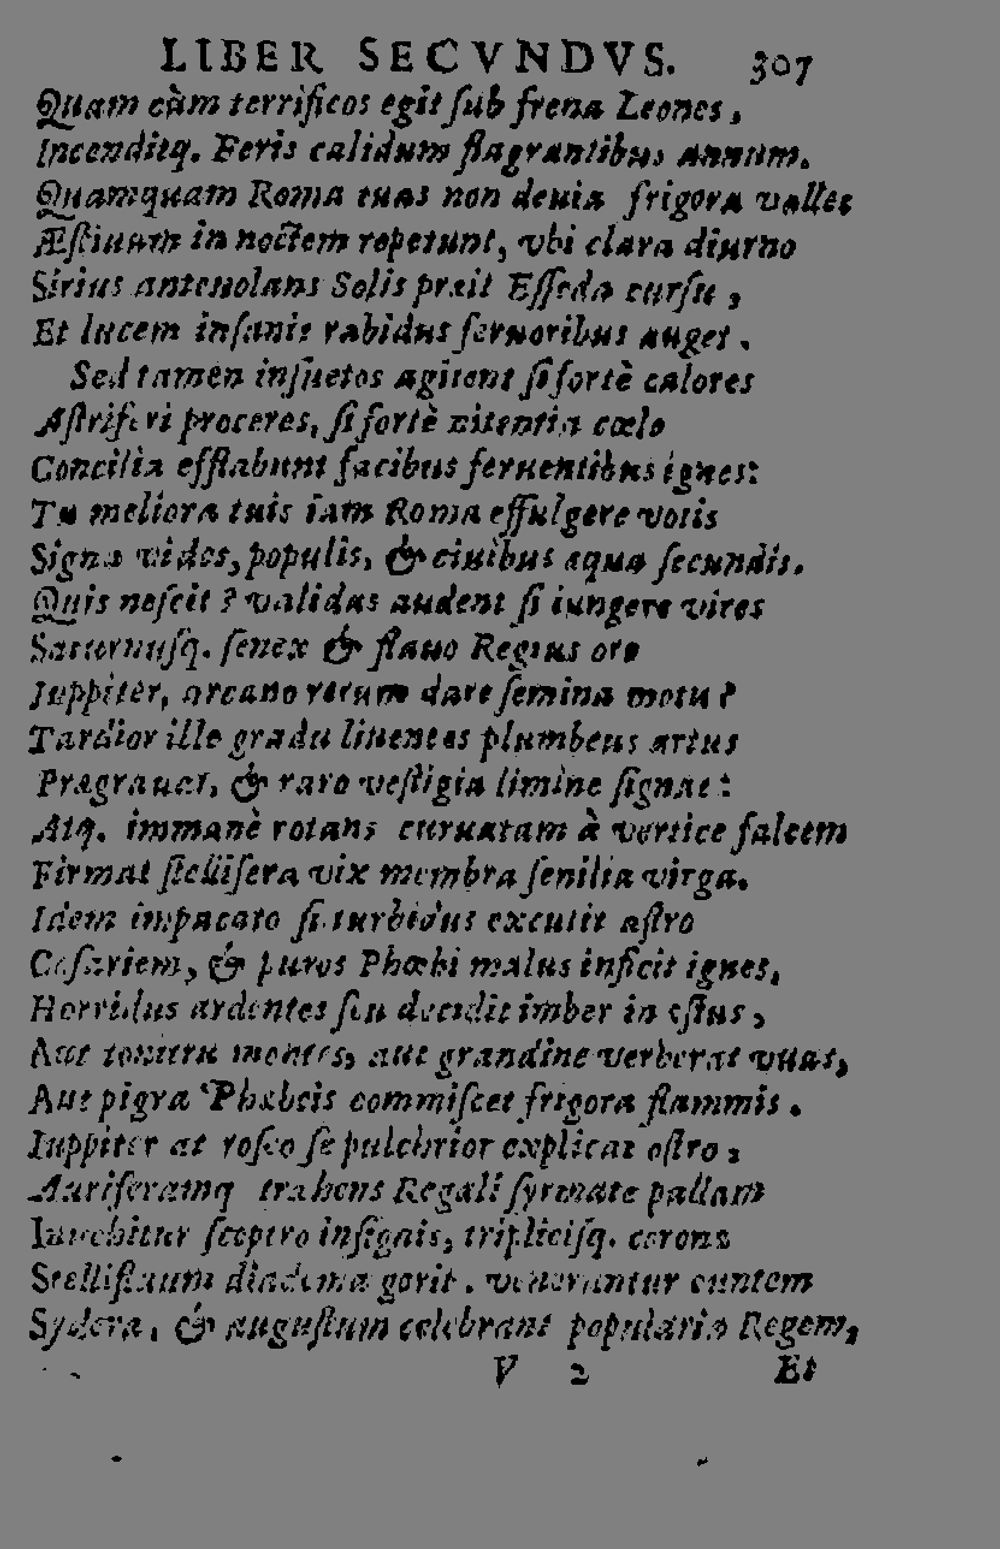 LIBER SECVNDVS. 307
Quam cùm terrificos egit ſub frena Leones,
Incenditq. Feris calidum flagrantibus annum.
Quamquam Roma tuas non deuia frigora valles
Æſtiuam in noctem repetunt, vbi clara diurno
Sirius anteuolans Solis præit Eſſeda curſu,
Et lucem inſanis rabidus feruoribus auget.
Sed tamen inſuetos agitent ſi fortè calores
Aſtriferi proceres, ſi fortè nitentia cœlo
Concilia efflabunt facibus feruentibus ignes:
Tu meliora tuis iam Roma effulgere votis
Signa vides, populis, & ciuibus aqua ſecundis.
Quis neſcit? validas audent ſi iungere vires
Saturnuſq. ſenex & flauo Regius ore
Iuppiter, arcano rerum dare ſemina motu?
Tardior ille gradu liuentes plumbeus artus
Prægrauat, & raro veſtigia limine ſignat:
Atq. immanè rotans curuatam à vertice falcem
Firmat ſtellifera vix membra ſenilia virga.
Idem impacato ſi turbidus excutit aſtro
Cæſariem, & puros Phœbi malus inficit ignes,
Horridus ardentes ſeu decidit imber in eſtus,
Aut tonitru montes, aut grandine verberat vuas,
Aut pigra Phæbeis commiſcet frigora flammis.
Iuppiter at roſeo ſe pulchrior explicat oſtro,
Auriferamq trahens Regali ſyrmate pallam
Inuehitur ſceptro inſignis, tripliciſq. corone
Stellifluum diadema gerit. venerantur euntem
Sydera, & auguſtum celebrant popularia Regem,
V 2 Et